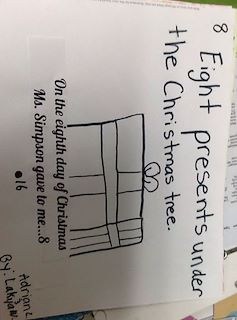 8 Eight presents under
the Christmas tree.
On the eighth day of Christmas
Ms. Simpson gave to me...8
16
By: